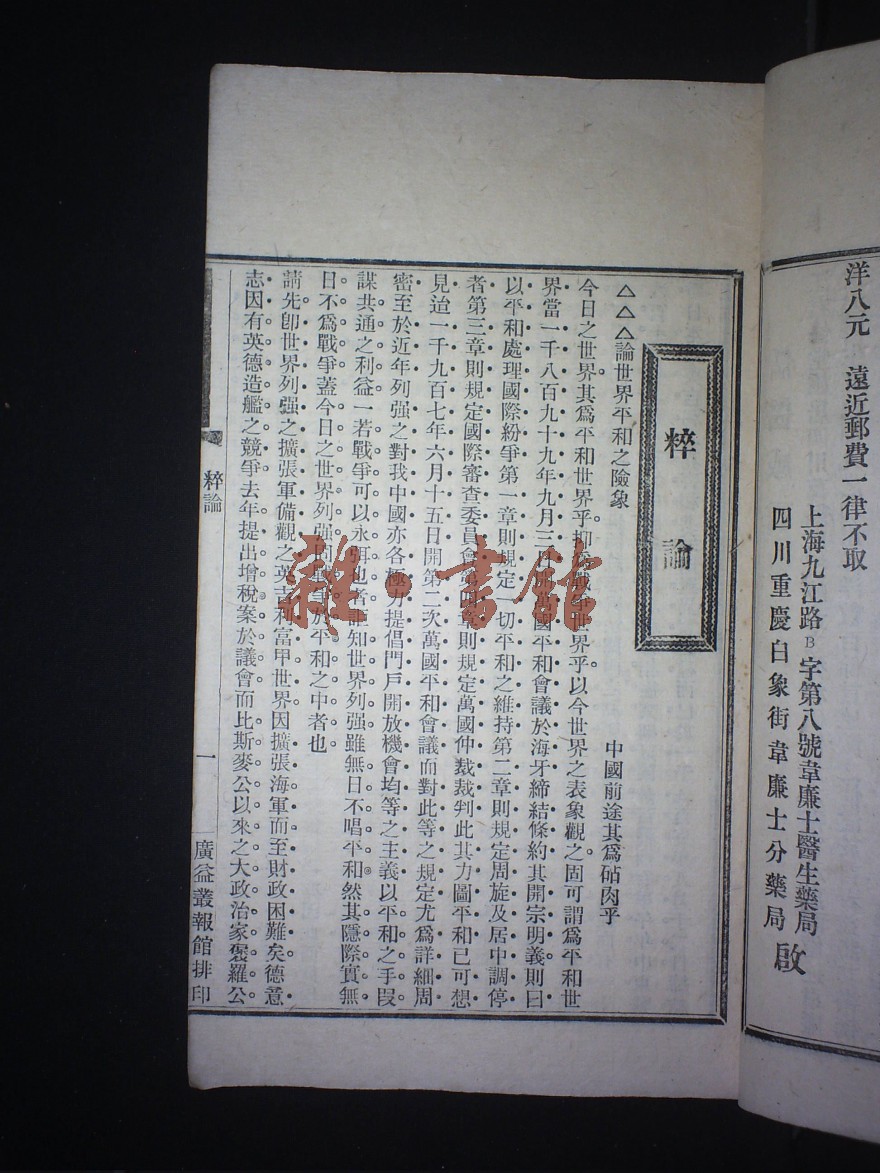 洋八元　遠近郵費一律不取
上海九江路B字第八號韋廉士醫生藥局
四川重慶白象街韋廉士分藥局
啟
粹論
△△△論世界平和之險象
中國前途其爲砧肉乎
今日之世界其爲平和世界乎抑爲戰爭世界乎以今世界之表象觀之固可謂爲平和世
界當一千八百九十九年九月三日萬國平和會議於海牙締結條約其開宗明義則曰
以平和處理國際紛爭第一章則規定一切平和之維持第二章則規定周旋及居中調停
者第三章則規定國際審查委員會第四章則規定萬國仲裁裁判此其力圖平和已可想
見迨一千九百七年六月十五日開第二次萬國平和會議而對此等之規定尤爲詳細周
密至於近年列强之對我中國亦各極力提倡門戶開放機會均等之主義以平和之手段
謀共通之利益一若戰爭可以永弭也者詎知世界列强雖無日不唱平和然其隱際實無
日不爲戰爭蓋今日之世界列强戰爭於平和之中者也
請先卽世界列强之擴張軍備觀之英吉利富甲世界因擴張海軍而至財政困難矣德意
志因有英德造艦之競爭去年提出增稅案於議會而比斯麥公以來之大政治家褒羅公
粹論
一
廣益叢報館排印
雜·書館